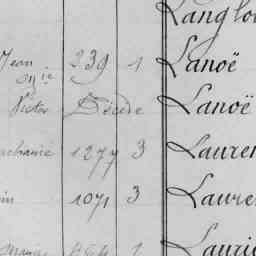 Langlo
Jean 239 1 Lanoë
Mie
Victor Décédé Lanoë
1277 3 Lauren
in 1071 3 Laure
1 Lauri